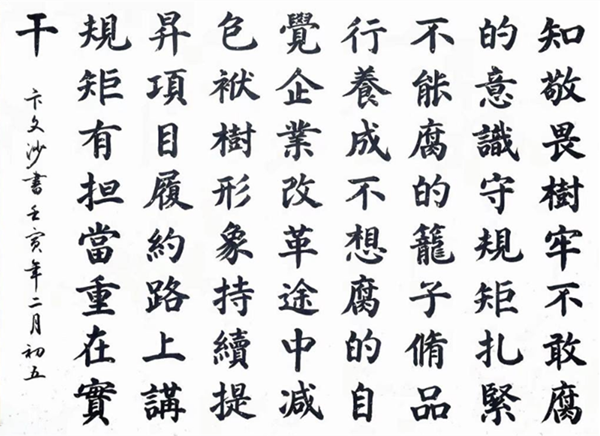 知敬畏樹牢不敢腐
的意識守規矩扎緊
不能腐的籠子脩品
行養成不想腐的自
覺企業改革途中減
色袱樹形象持續提
昇項目履約路上講
規矩有担當重在實
干
卞文沙書壬寅年二月初五